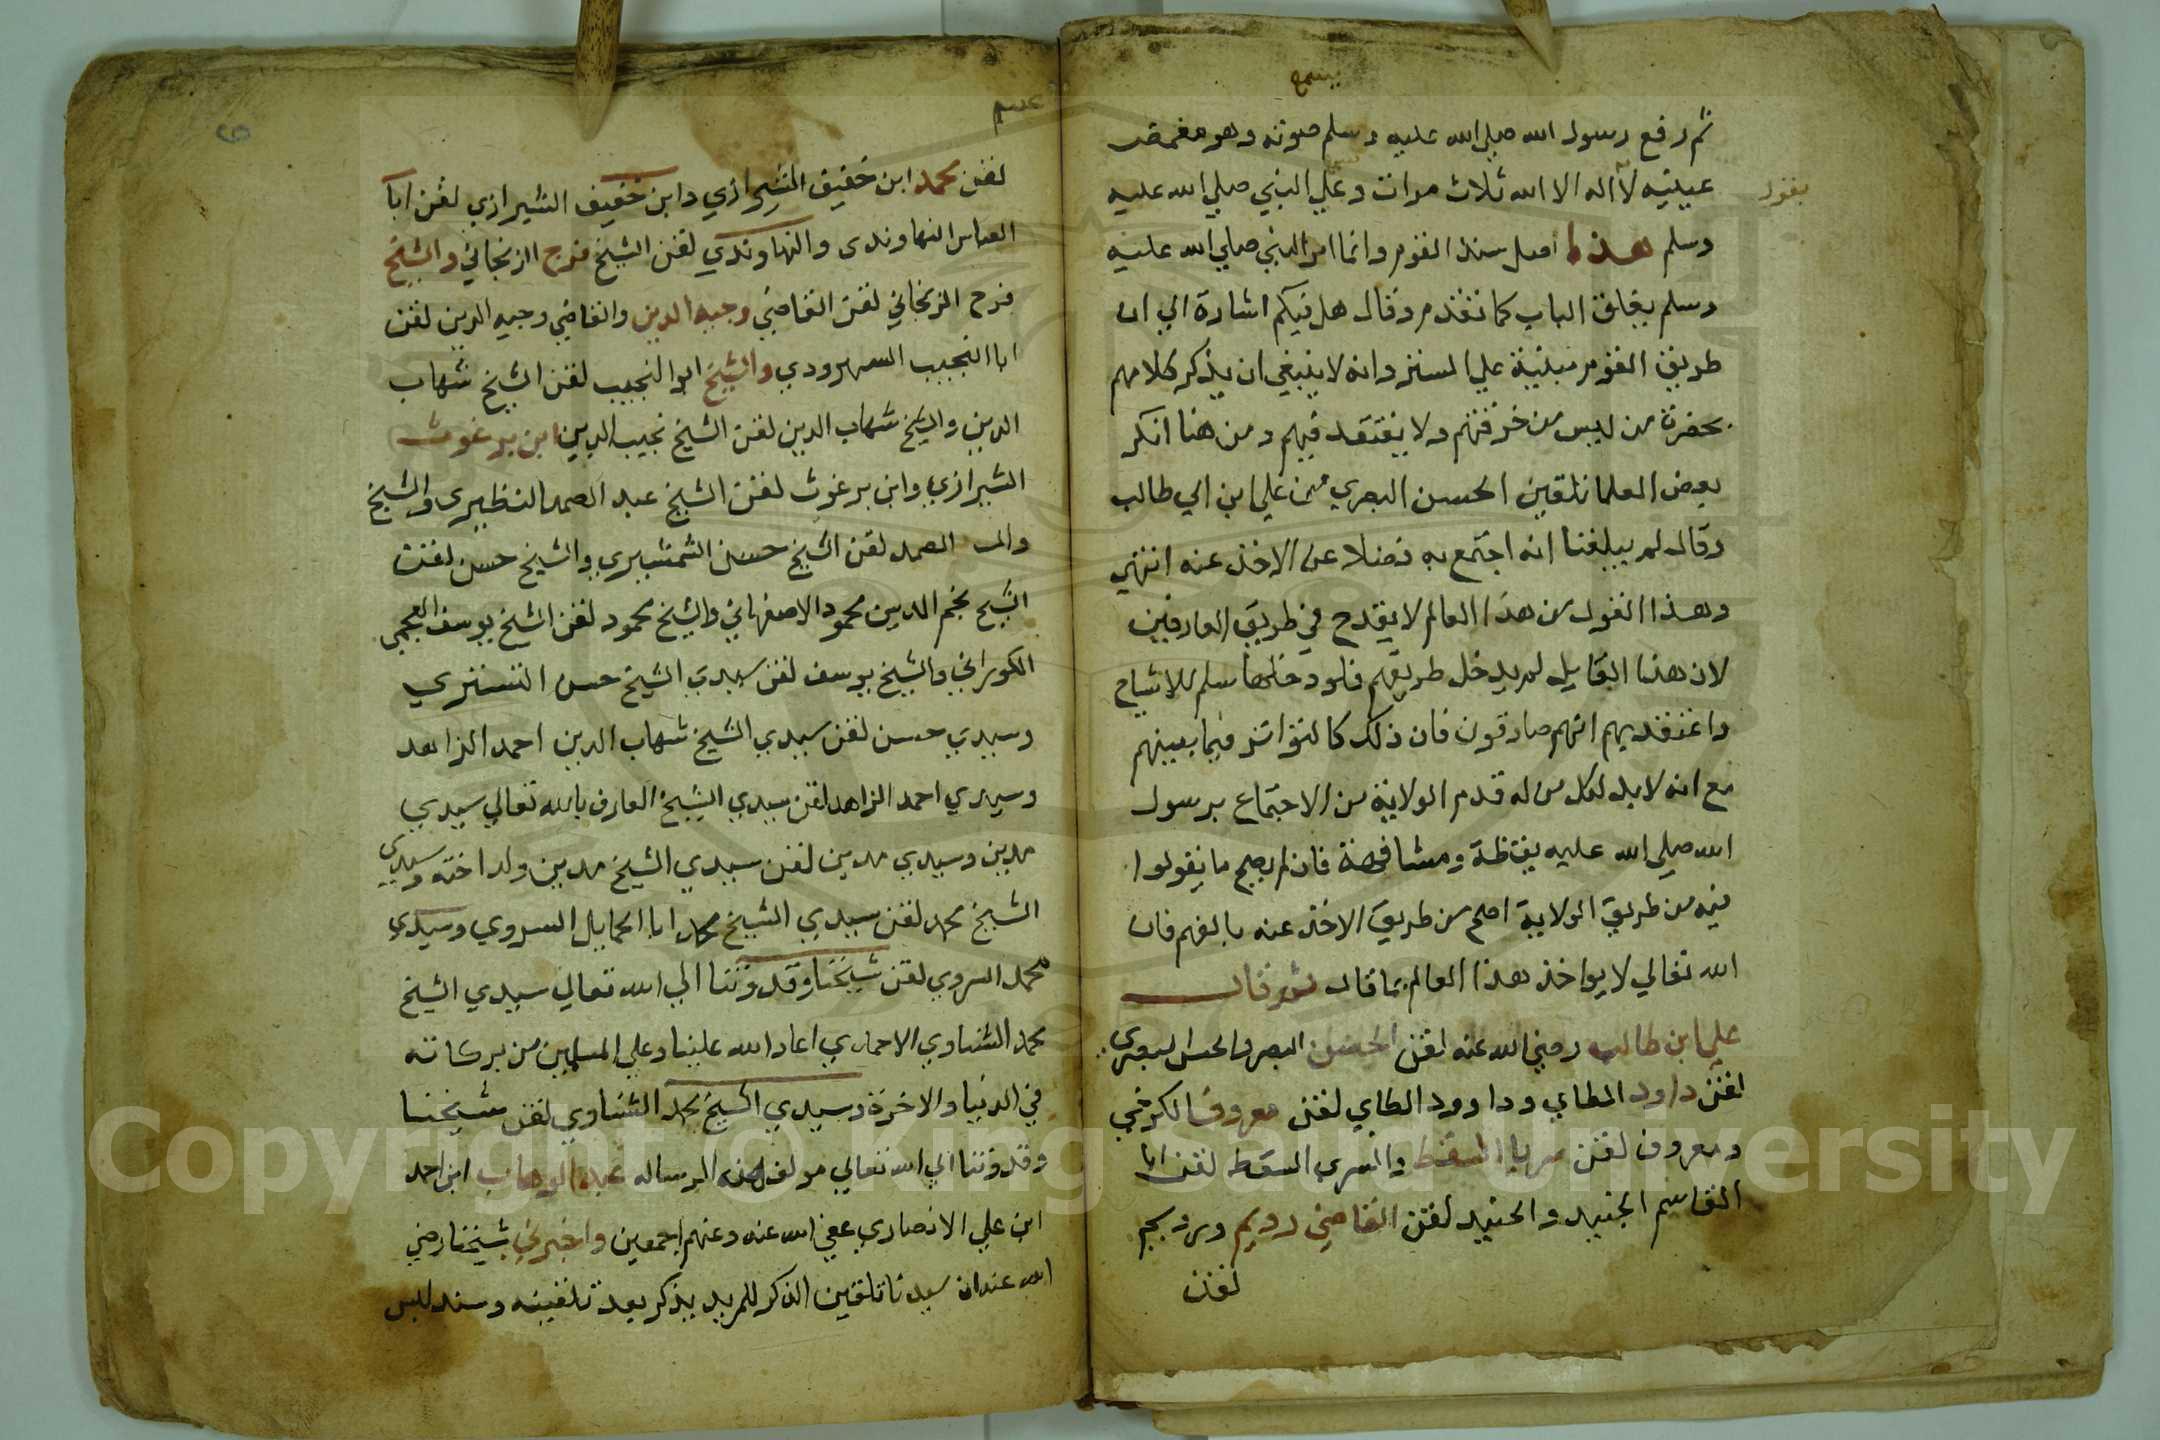 يسمع
ثم رفع رسول الله صلي الله عليه وسلم صوته وهو مغمض
عينيه لا اله الا الله ثلاث مرات وعلي النبي صلي الله عليه
يقول
وسلم هذا اصل سند القوم وانما امر النبي صلي الله عليه
وسلم بغلق الباب كما تقدم وقال هل فيكم اشارة الي ان
طريق القوم مبنية علي الستر وانه لا ينبغي ان يذكر كلامهم
بحضرة من ليس من خرقتهم ولا يعتقد فيهم ومن هنا انكر
بعض العلما تلقين الحسن البصري من علي ابن ابي طالب
وقال لم يبلغنا انه اجتمع به فضلا عن الاخذ عنه انتهي
وهذا القول من هذا العالم لا يقدح في طريق العارفين
لان هذا القايل لم يدخل طريقهم فلو دخلها سلم للاشياخ
واعتقد بهم انهم صادقون فان ذلك كالتواتر فيما بينهم
مع انه لا بد لكل من له قدم الولاية من الاجتماع برسول
الله صلي الله عليه يقظة ومشافهة فان لم يصح ما يقولوا
فيه من طريق الولاية اصح من طريق الاخذ عنه بالفهم فان
الله تعالي لا يواخذ هذا العالم بما قال ثم قال
علي ابن طالب رضي الله عنه لقن الحسن البصر والحسن البصري
لقن داود الطاي وداوود الطاي لقن معروفا الكرخي
ومعروف لقن سريا السقط والسري السقط لقن ابا
القاسم الجنيد والجنيد لقن القاضي رويم ورويم
لقن
لقن محمد ابن خفيق الشيرازي وابن خفيف الشيرازي لقن ابا
العباس النهاوندى والنهاوندي لقن الشيخ فرج الزنجاني والشيخ
فرح الزنجاني لقن القاضي وجيه الدين والقاضي وجيه الدين لقن
ابا النجيب السهرودي والشيخ ابوالنجيب لقن الشيخ شهاب
الدين والشيخ شهاب الدين لقن الشيخ نجيب الدين ابن برغوث
الشيرازي وابن برغوث لقن الشيخ عبد الصمد النظيرى والشيخ
الصمد لقن الشيخ حسن الشمشيري والشيخ حسن لقن
الشيخ نجم الدين محمود الاصفهاني والشيخ محمود لقن الشيخ يوسف العجمي
الكوراني والشيخ يوسف لقن سيدي الشيخ حسن التستري
وسيدي حسن لقن سيدي الشيخ شهاب الدين احمد الزاهد
وسيدي احمد الزاهد لقن سيدي الشيخ العارف بالله تعالي سيدي
مدين وسيدي مدين لقن سيدي الشيخ مدين ولد اخته وسيدي
الشيخ محمد لقن سيدي الشيخ محمد ابا الحمايل السروي وسيدي
محمد السروي لقن شيخنا وقدوتنا الي الله تعالي سيدي الشيخ
محمد الشناوي الاحمدي اعاد الله علينا وعلي المسلمين من بركاته
في الدنيا والاخرة وسيدي الشيخ محمد الشناوي لقن شيخنا
وقدوتنا الي الله تعالي مولف هذه الرساله عبد الوهاب ابن احمد
ابن علي الانصاري عفي الله عنه وعنهم اجمعين واخبرني شيخنا رضي
الله عنه ان سيدنا تلقين الذكر للمريد يذكر بعد تلقينه وسند للبس
Copyright © King Saud University